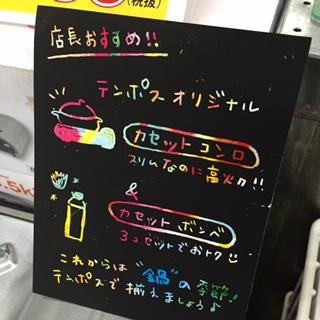 (税抜)
店長おすすめ!!
テンポスオリジナル
カセットコンロ
スリムなのに高火力!!
&
カセットボンベ
3コセットでおトク
これからは"鍋"の季節!
テンポスで揃えましょう♪